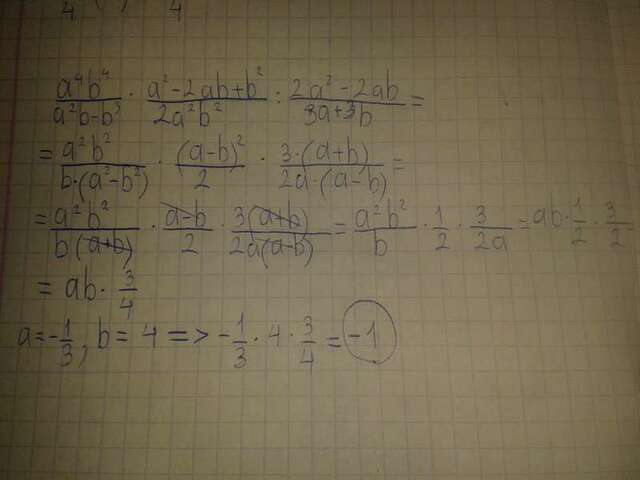 4 ) 4
a⁴b⁴/(a²b-b³) · (a²-2ab+b²)/(2a²b²) : (2a²-2ab)/(3a+3b) =
= a²b²/(b·(a²-b²)) · (a-b)²/2 · 3·(a+b)/(2a·(a-b)) =
= a²b²/(b(a+b)) · (a-b)/2 · 3(a+b)/(2a(a-b)) = a²b²/b · 1/2 · 3/2a = ab · 1/2 · 3/2
= ab · 3/4
a = -1/3, b = 4 => -1/3 · 4 · 3/4 = -1